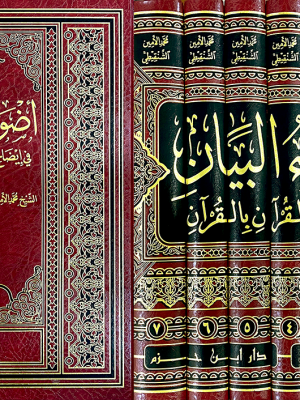 أضو
في إيضا
الشيخ محمد الأمين
محمد الأمين
الشنقيطي
محمد الأمين
الشنقيطي
محمد الأمين
الشنقيطي
محمد الأمين
الشنقيطي
ء البيان
لقرآن بالقرآن
٤
٥
٦
٧
دار ابن حزم